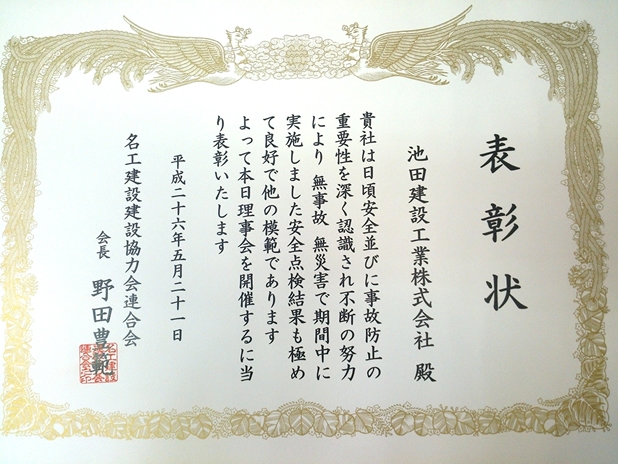 表彰状
池田建設工業株式会社 殿
貴社は日頃安全並びに事故防止の
重要性を深く認識され不断の努力
により 無事故 無災害で期間中に
実施しました安全点検結果も極め
て良好で他の模範であります
よって本日理事会を開催するに当
り表彰いたします
平成二十六年五月二十一日
名工建設建設協力会連合会
会長 野田豊範